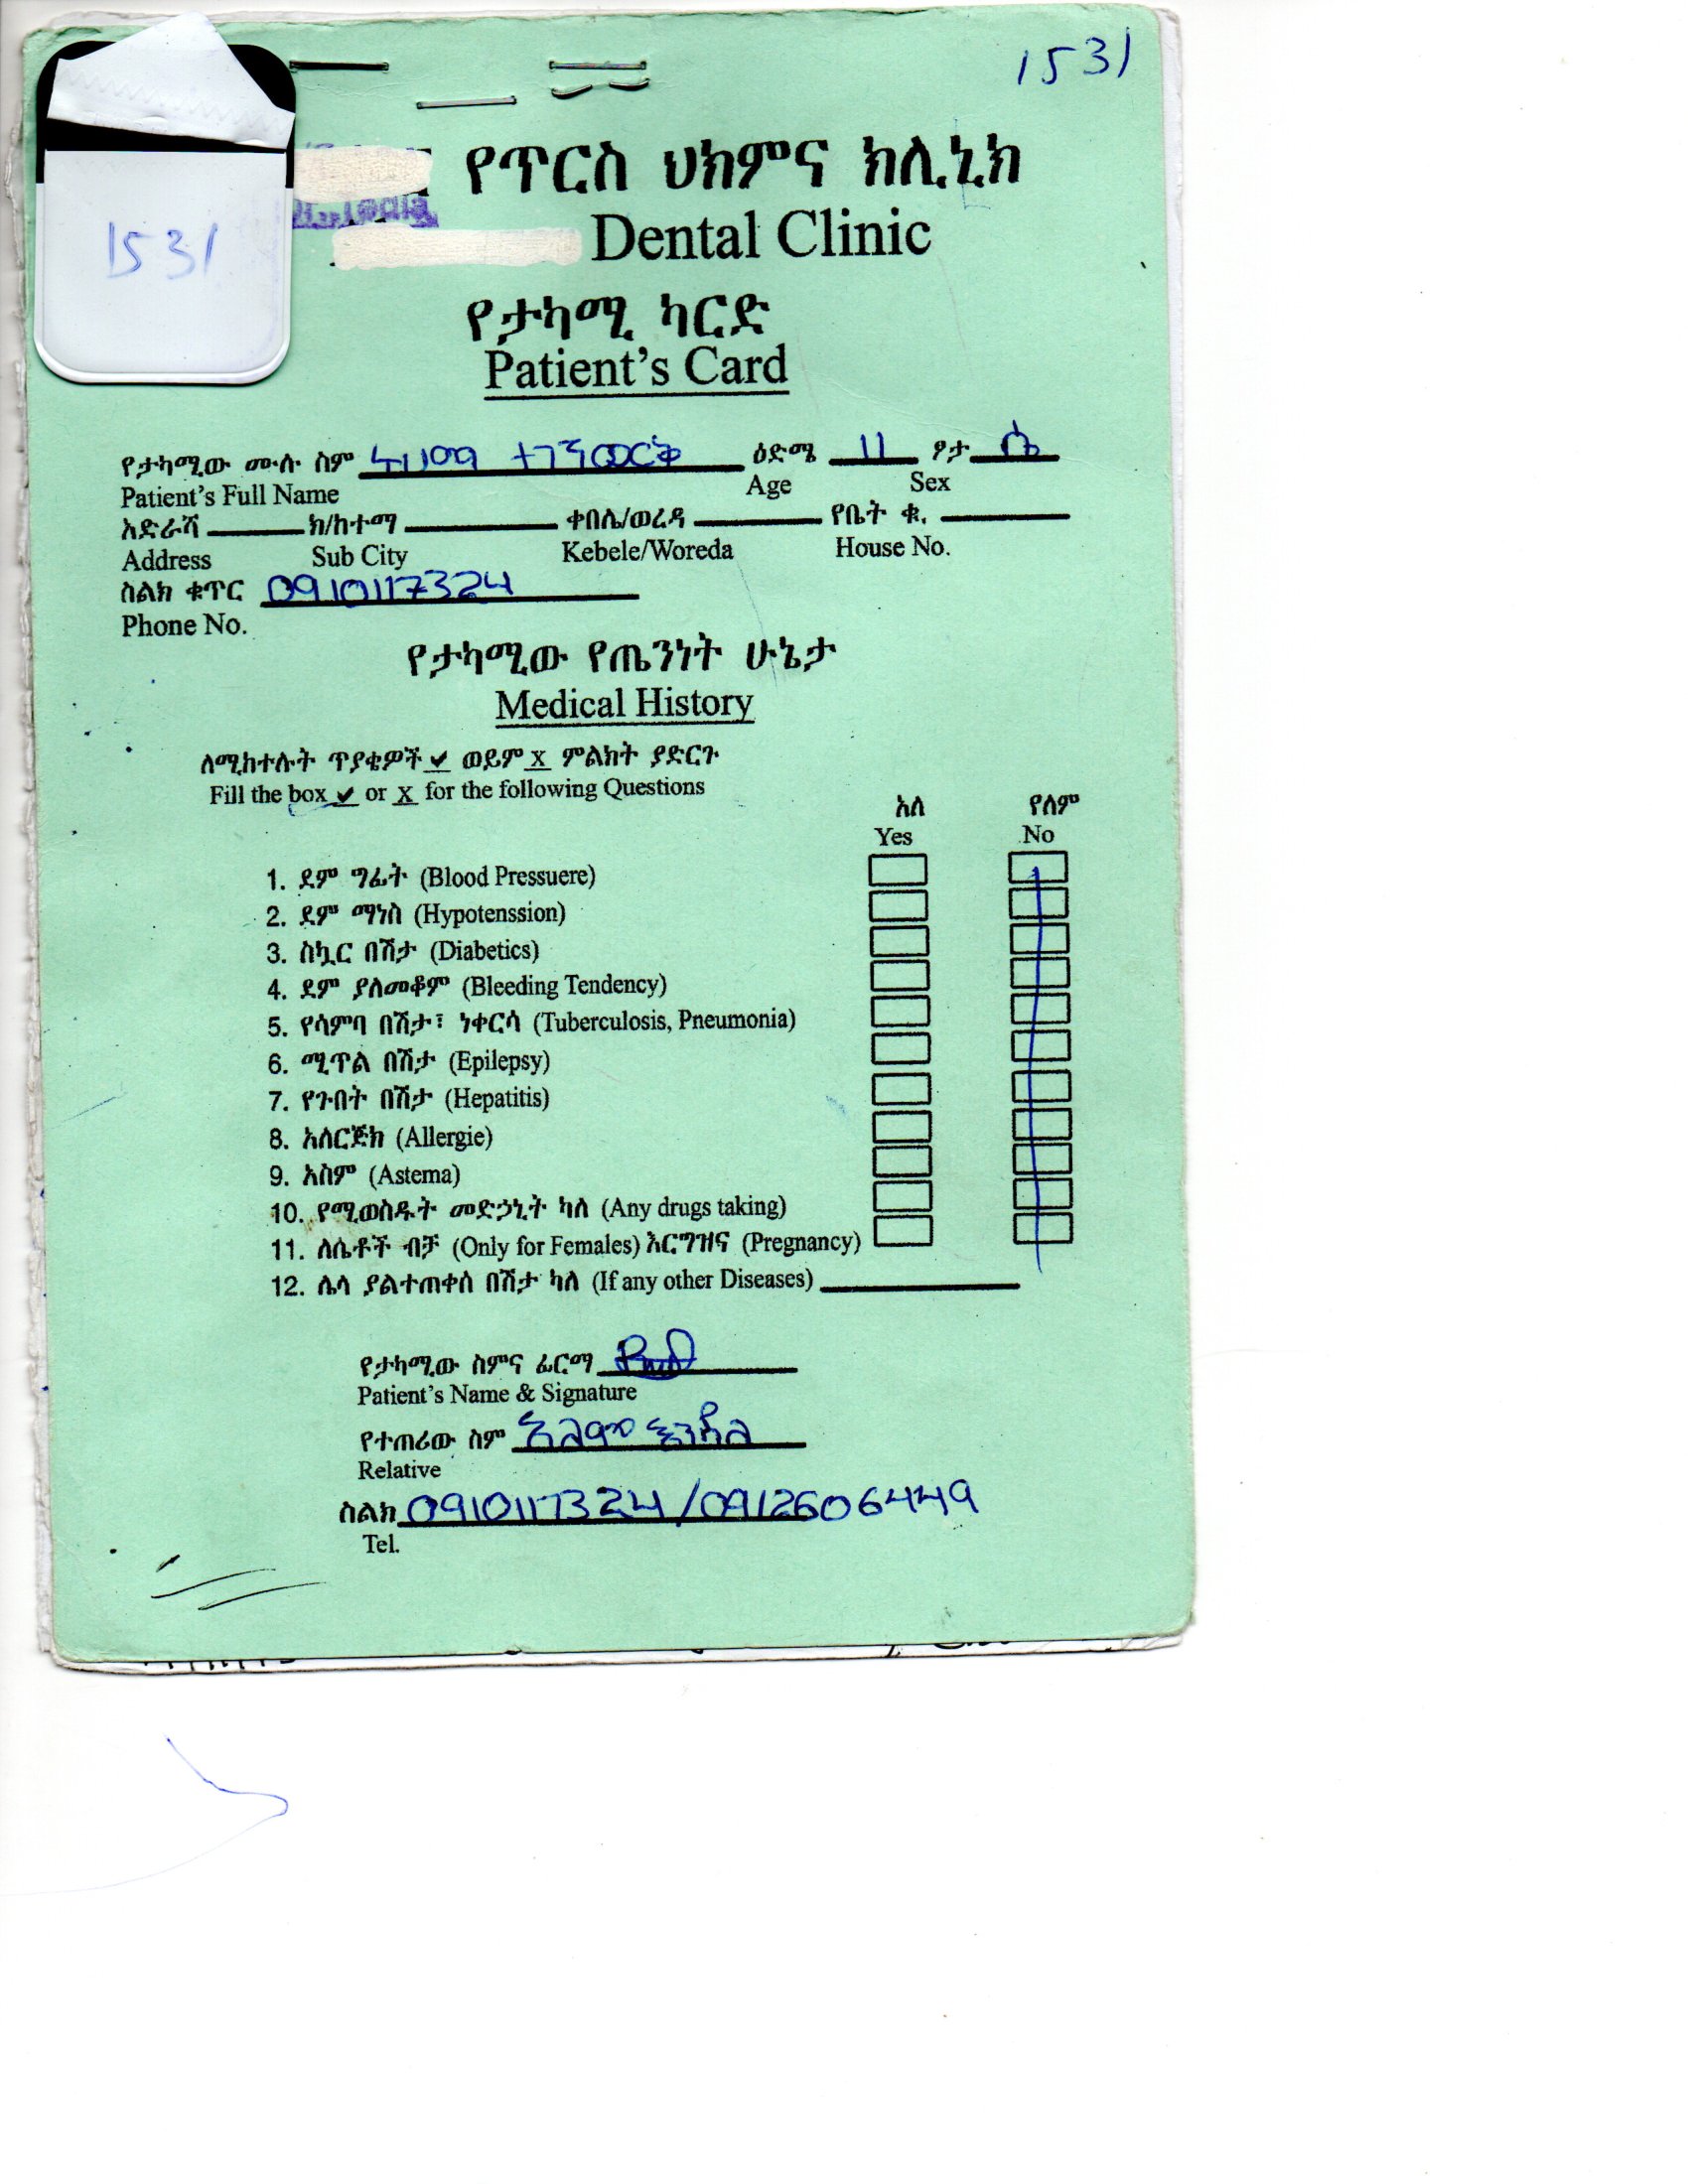 1531
1531
የጥርስ ህክምና ክሊኒክ
Dental Clinic
የታካሚ ካርድ
Patient's Card
የታካሚው ሙሉ ስም ተገኝወርቅ ዕድሜ 11 ፆታ ሴ
Patient's Full Name Age Sex
አድራሻ ክ/ከተማ ቀበሌ/ወረዳ የቤት ቁ.
Address Sub City Kebele/Woreda House No.
ስልክ ቁጥር 0910117324
Phone No.
የታካሚው የጤንነት ሁኔታ
Medical History
ለሚከተሉት ጥያቄዎች ✔ ወይም X ምልክት ያድርጉ
Fill the box ✔ or X for the following Questions
አለ የለም
Yes No
1. ደም ግፊት (Blood Pressuere)
2. ደም ማነስ (Hypotenssion)
3. ስኳር በሽታ (Diabetics)
4. ደም ያለመቆም (Bleeding Tendency)
5. የሳምባ በሽታ፣ ነቀርሳ (Tuberculosis, Pneumonia)
6. ሚጥል በሽታ (Epilepsy)
7. የጉበት በሽታ (Hepatitis)
8. አለርጅክ (Allergie)
9. አስም (Astema)
10. የሚወስዱት መድኃኒት ካለ (Any drugs taking)
11. ለሴቶች ብቻ (Only for Females) እርግዝና (Pregnancy)
12. ሌላ ያልተጠቀሰ በሽታ ካለ (If any other Diseases)
የታካሚው ስምና ፊርማ
Patient's Name & Signature
የተጠሪው ስም
Relative
ስልክ 0910117324 /0912606449
Tel.